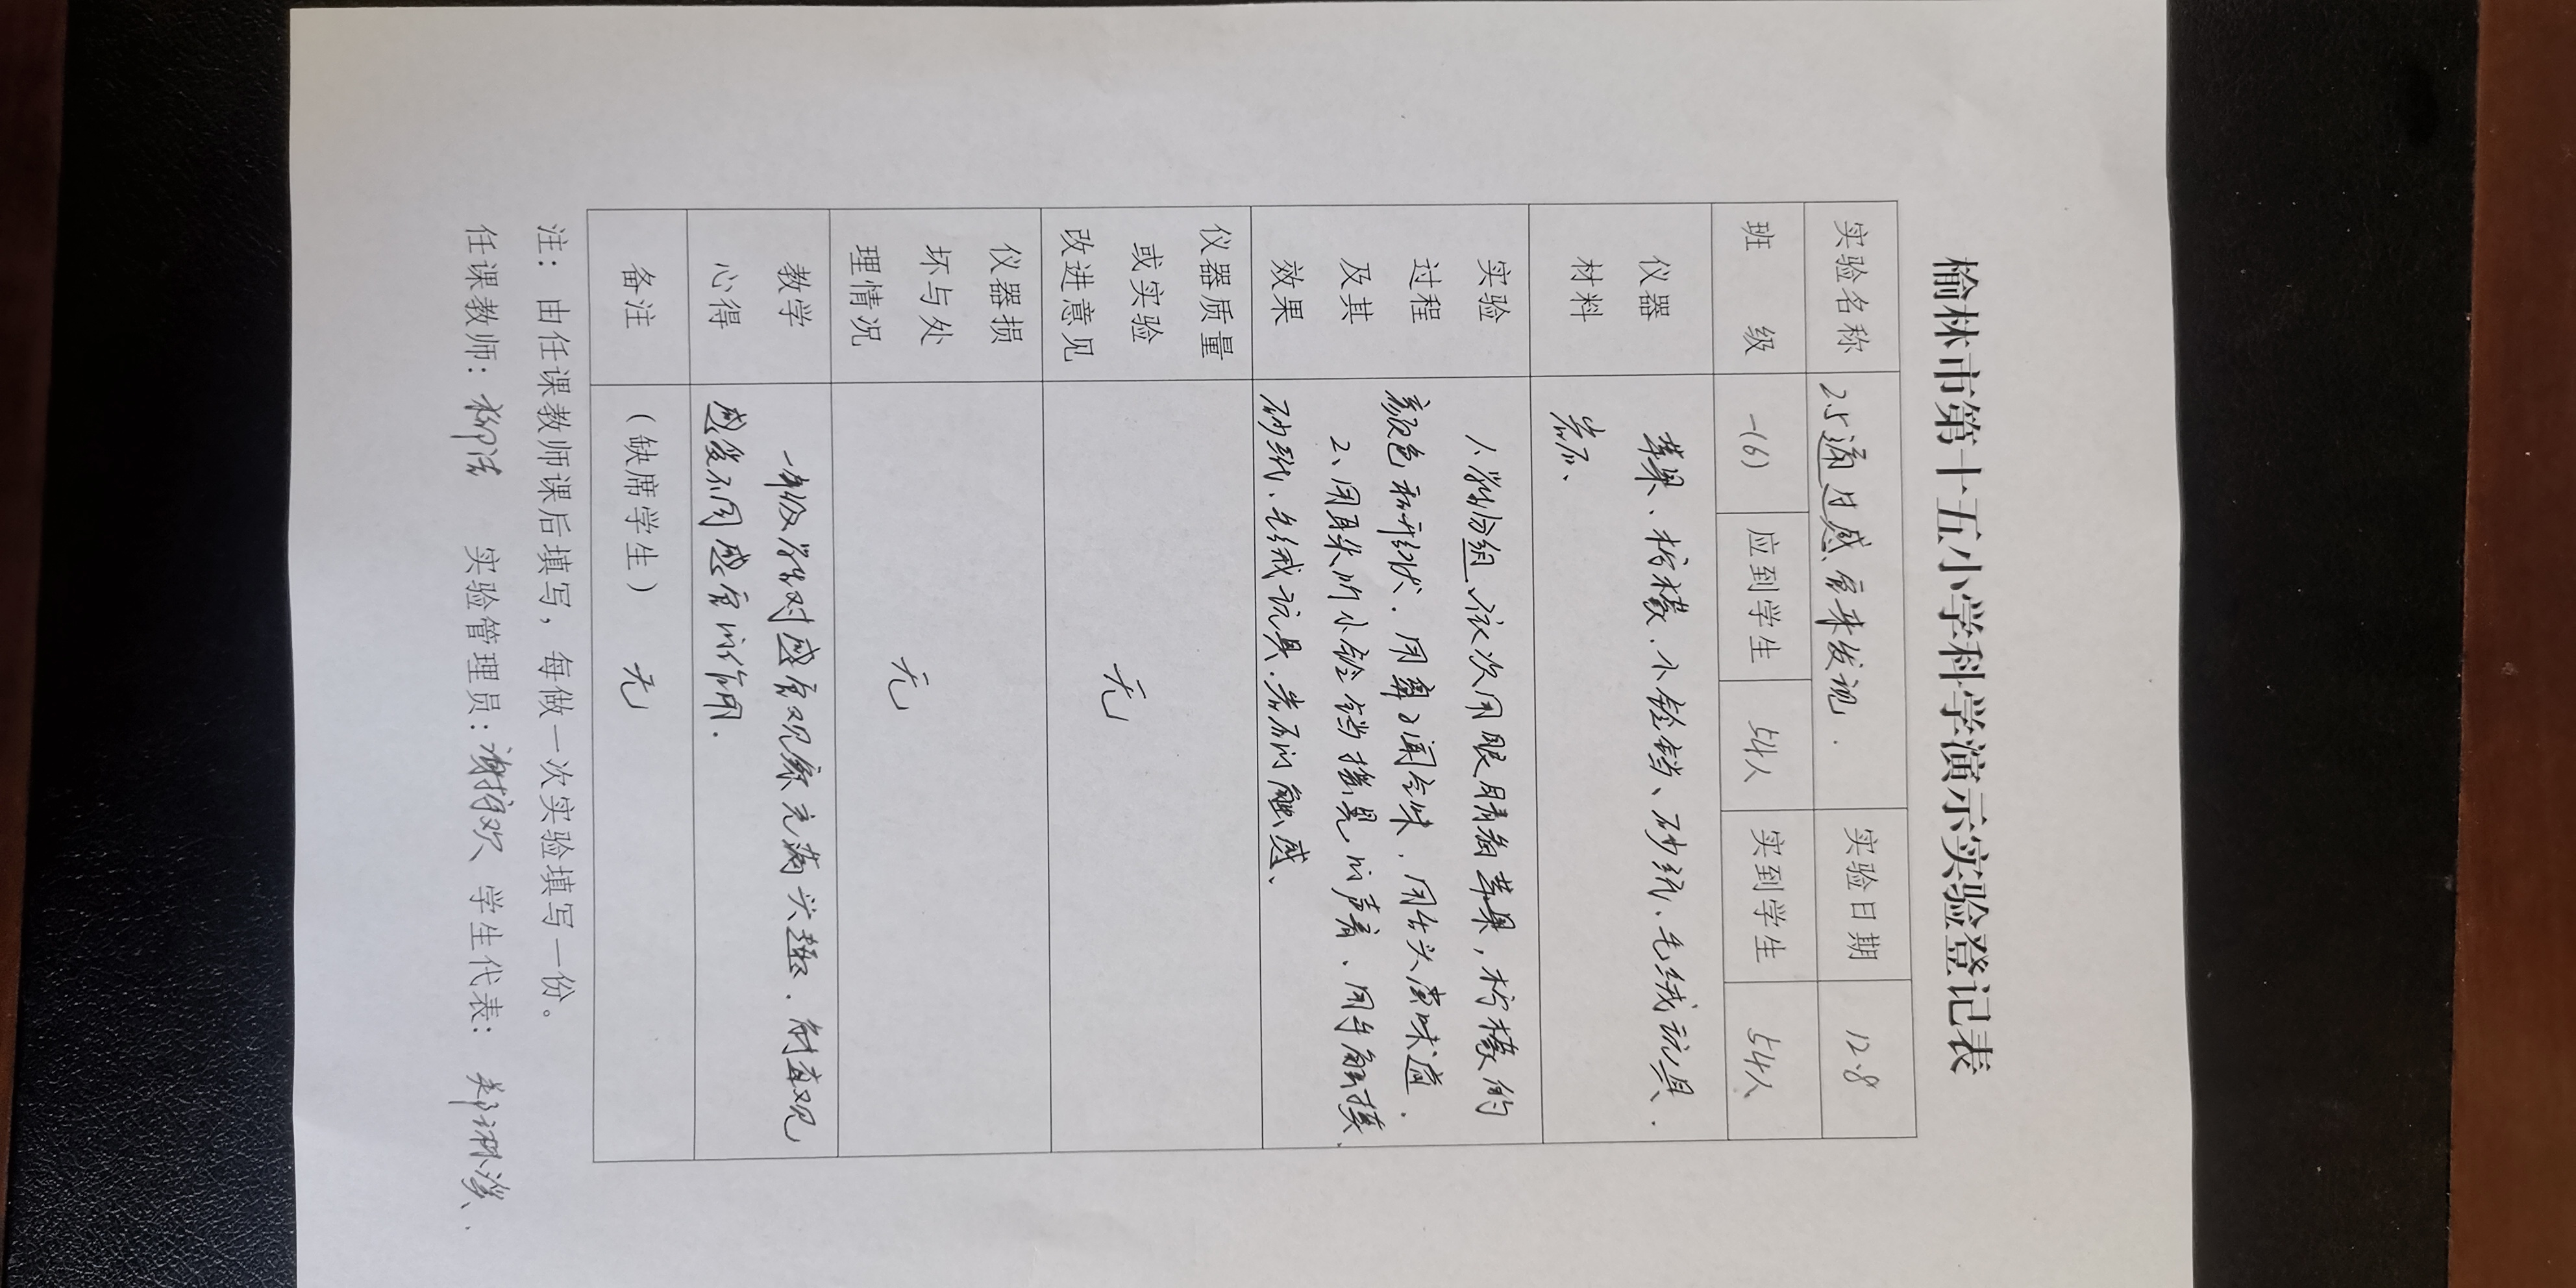 榆林市第十五小学科学演示实验登记表
实验名称 2.5通过感官来发现. 实验日期 12.8
班级 一(6) 应到学生 54人 实到学生 54人
仪器 苹果、柠檬、小铃铛、砂纸、毛绒玩具.
材料 岩石、
实验 1、学生分组、依次用眼睛看苹果,柠檬的
过程 颜色和形状.用鼻子闻气味,用舌头尝味道.
及其 2、用耳朵听小铃铛摇晃的声音、用手触摸
效果 砂纸、毛绒玩具、岩石的触感、
仪器质量
或实验 无
改进意见
仪器损
坏与处 无
理情况
教学 一年级学生对感官观察充满兴趣.能直观
心得 感受不同感官的作用.
备注 (缺席学生) 无
注:由任课教师课后填写,每做一次实验填写一份。
任课教师:柳洁 实验管理员: 学生代表: